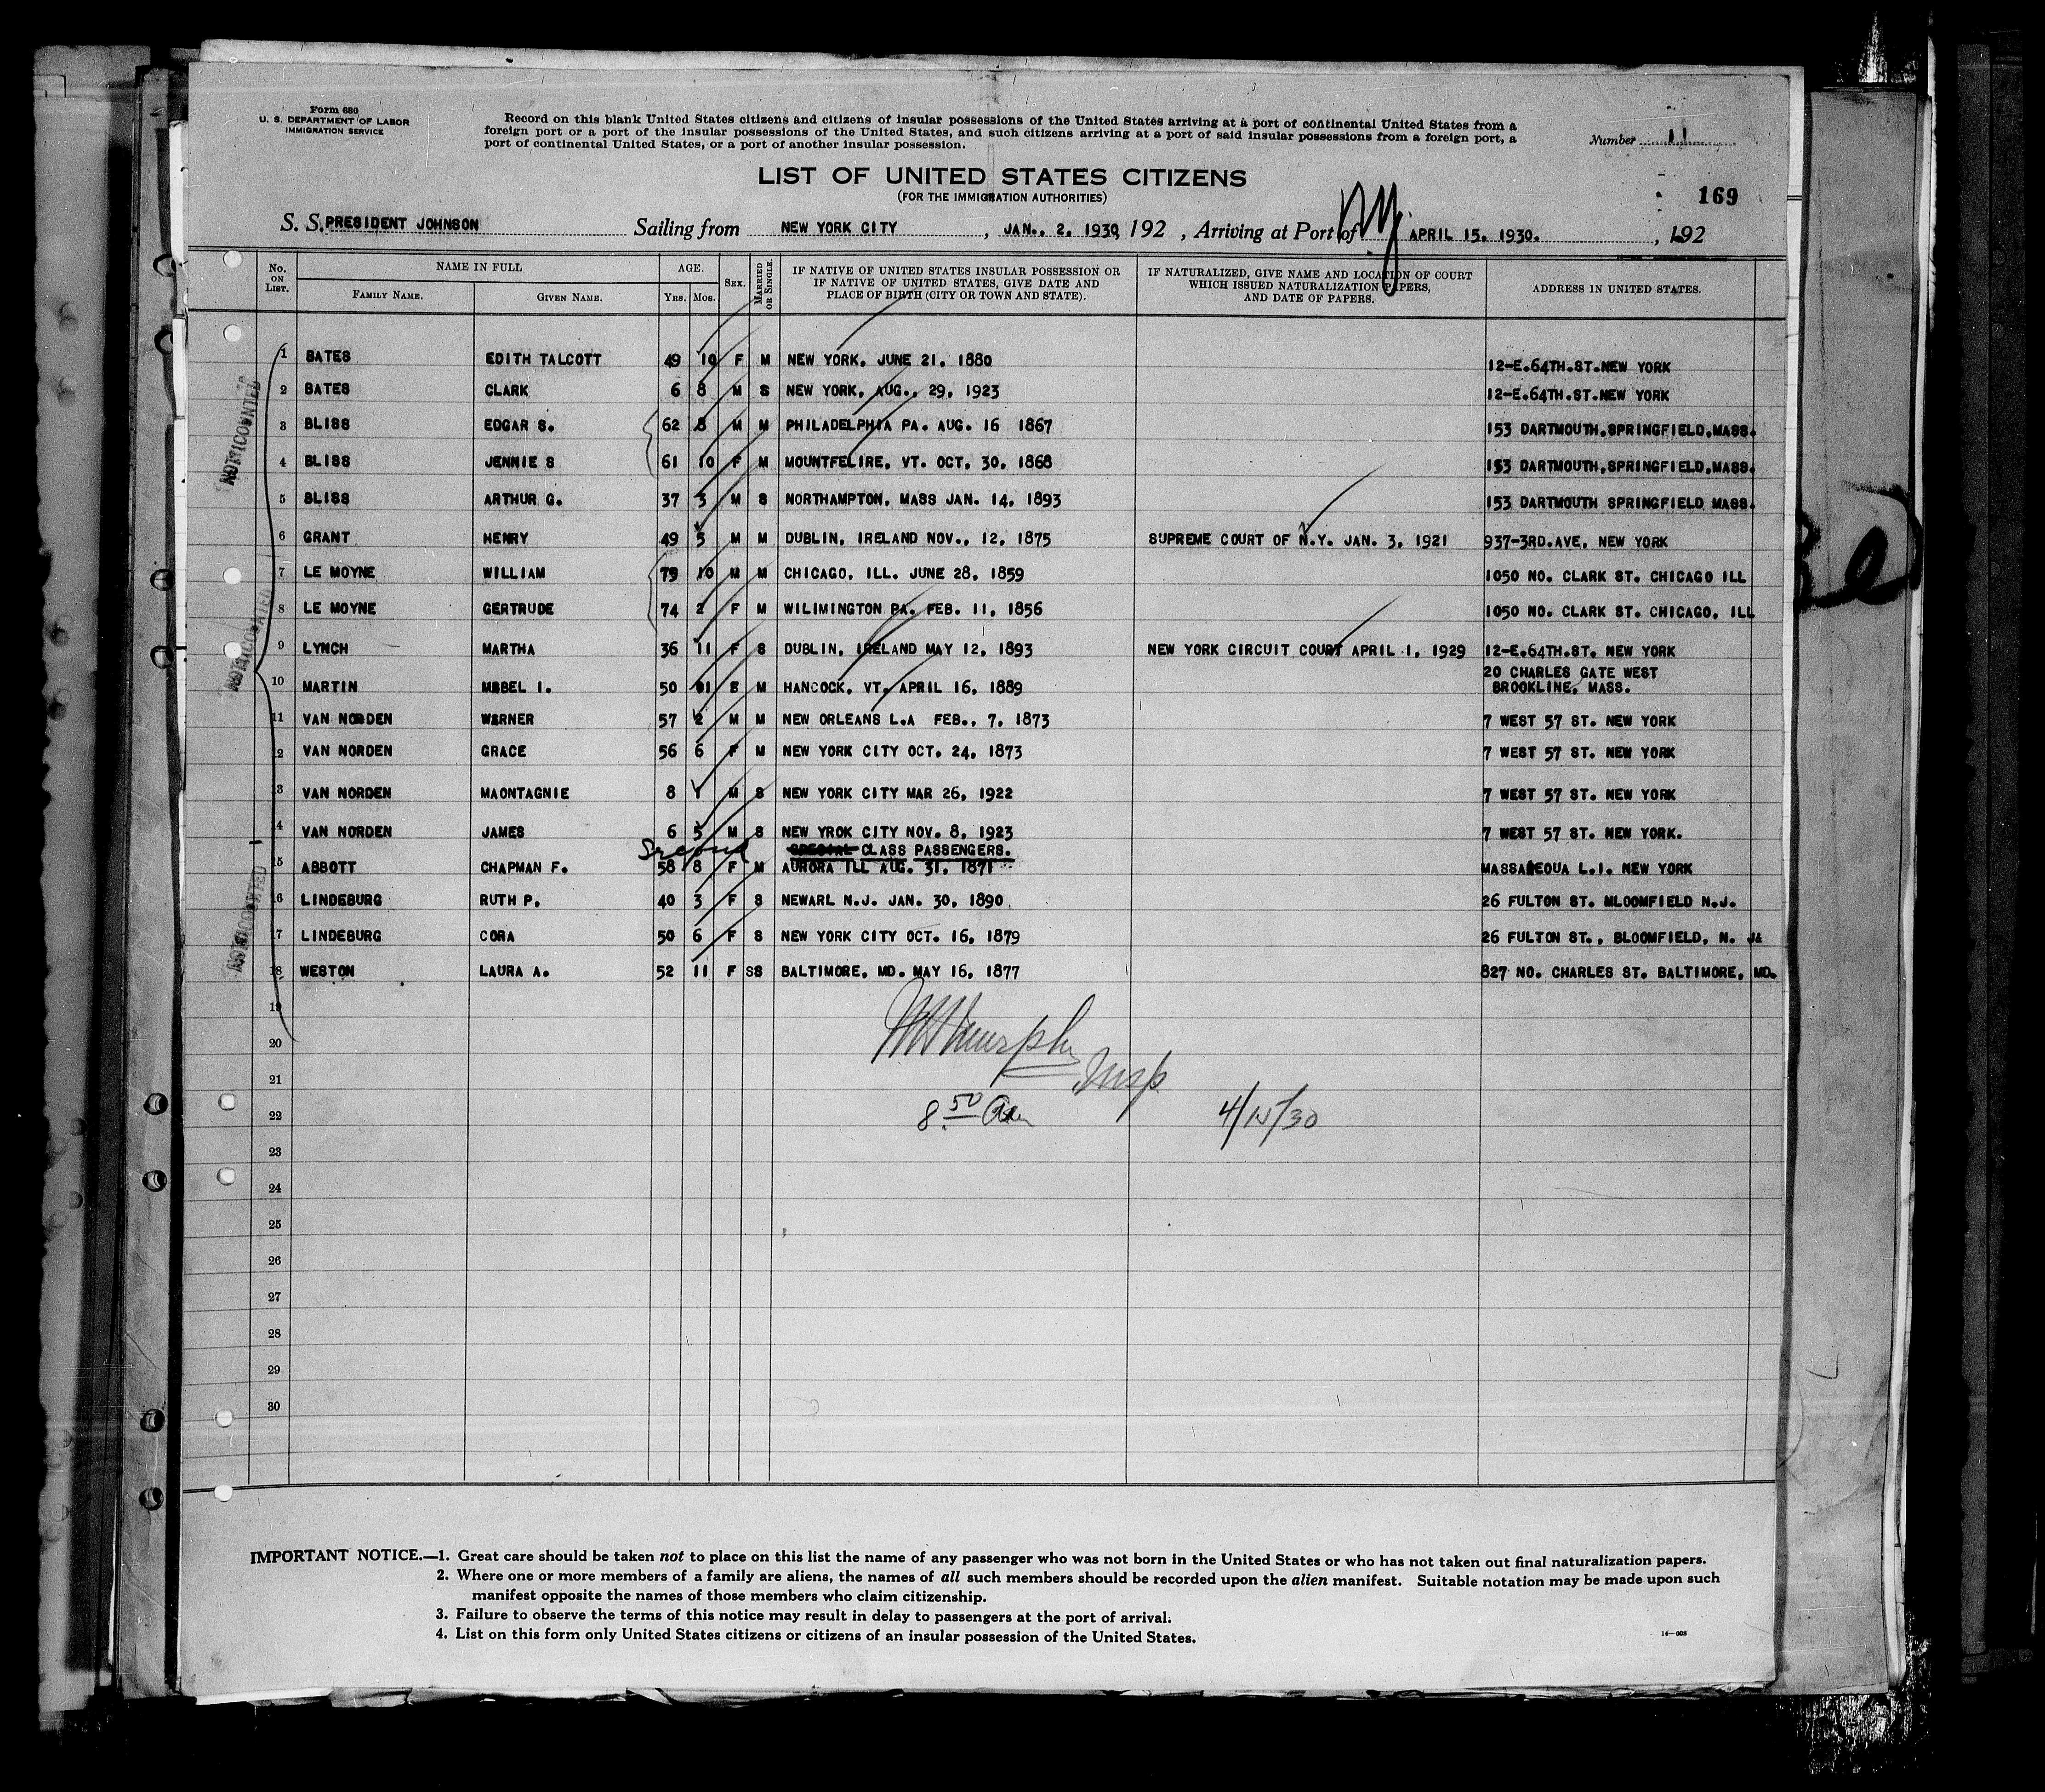 Form 630
U. S. DEPARTMENT OF LABOR
IMMIGRATION SERVICE
Record on this blank United States citizens and citizens of insular possessions of the United States arriving at a port of continental United States from a
foreign port or a port of the insular possessions of the United States, and such citizens arriving at a port of said insular possessions from a foreign port, a
port of continental United States, or a port of another insular possession.
Number 11
LIST OF UNITED STATES CITIZENS
(FOR THE IMMIGRATION AUTHORITIES)
169
S. S. PRESIDENT JOHNSON Sailing from NEW YORK CITY , JAN., 2. 1930, 192 , Arriving at Port of N.Y. APRIL 15. 1930. , 192
No. ON LIST. NAME IN FULL AGE. SEX. MARRIED OR SINGLE. IF NATIVE OF UNITED STATES INSULAR POSSESSION OR IF NATIVE OF UNITED STATES, GIVE DATE AND PLACE OF BIRTH (CITY OR TOWN AND STATE). IF NATURALIZED, GIVE NAME AND LOCATION OF COURT WHICH ISSUED NATURALIZATION PAPERS, AND DATE OF PAPERS. ADDRESS IN UNITED STATES.
FAMILY NAME. GIVEN NAME. YRS. MOS.
1 BATES EDITH TALCOTT 49 10 F M NEW YORK, JUNE 21, 1880 12-E.64TH.ST.NEW YORK
2 BATES CLARK 6 8 M S NEW YORK, AUG., 29, 1923 12-E.64TH.ST.NEW YORK
3 BLISS EDGAR S. 62 8 M M PHILADELPHIA PA. AUG. 16 1867 153 DARTMOUTH,SPRINGFIELD,MASS.
4 BLISS JENNIE S 61 10 F M MOUNTFELIRE, VT. OCT, 30, 1868 153 DARTMOUTH,SPRINGFIELD,MASS.
5 BLISS ARTHUR G. 37 3 M S NORTHAMPTON, MASS JAN. 14, 1893 153 DARTMOUTH SPRINGFIELD MASS.
6 GRANT HENRY 49 5 M M DUBLIN, IRELAND NOV., 12, 1875 SUPREME COURT OF N.Y. JAN. 3, 1921 937-3RD.AVE, NEW YORK
7 LE MOYNE WILLIAM 79 10 M M CHICAGO, ILL. JUNE 28, 1859 1050 NO. CLARK ST. CHICAGO ILL
8 LE MOYNE GERTRUDE 74 2 F M WILIMINGTON PA. FEB. 11, 1856 1050 NO. CLARK ST. CHICAGO, ILL
9 LYNCH MARTHA 36 11 F S DUBLIN, IRELAND MAY 12, 1893 NEW YORK CIRCUIT COURT APRIL 1, 1929 12-E.64TH.ST. NEW YORK
10 MARTIN MABEL I. 50 11 F M HANCOCK, VT. APRIL 16, 1889 20 CHARLES GATE WEST
BROOKLINE, MASS.
11 VAN NORDEN WARNER 57 2 M M NEW ORLEANS L.A FEB., 7, 1873 7 WEST 57 ST. NEW YORK
12 VAN NORDEN GRACE 56 6 F M NEW YORK CITY OCT. 24, 1873 7 WEST 57 ST. NEW YORK
13 VAN NORDEN MAONTAGNIE 8 1 M S NEW YORK CITY MAR 26, 1922 7 WEST 57 ST. NEW YORK
14 VAN NORDEN JAMES 6 5 M S NEW YROK CITY NOV. 8, 1923 7 WEST 57 ST. NEW YORK.
Second SPECIAL CLASS PASSENGERS.
15 ABBOTT CHAPMAN F. 58 8 F M AURORA ILL AUG. 31. 1871 MASSAPEOUA L.I. NEW YORK
16 LINDEBURG RUTH P. 40 3 F S NEWARL N.J. JAN. 30, 1890 26 FULTON ST. MLOOMFIELD N.J.
17 LINDEBURG CORA 50 6 F S NEW YORK CITY OCT. 16, 1879 26 FULTON ST., BLOOMFIELD, N. J&
18 WESTON LAURA A. 52 11 F SS BALTIMORE, MD. MAY 16, 1877 827 NO. CHARLES ST. BALTIMORE, MD.
19
20
21
22
23
24
25
26
27
28
29
30
Murphy
Insp
8.50 am 4/15/30
IMPORTANT NOTICE.—1. Great care should be taken not to place on this list the name of any passenger who was not born in the United States or who has not taken out final naturalization papers.
2. Where one or more members of a family are aliens, the names of all such members should be recorded upon the alien manifest. Suitable notation may be made upon such
manifest opposite the names of those members who claim citizenship.
3. Failure to observe the terms of this notice may result in delay to passengers at the port of arrival.
4. List on this form only United States citizens or citizens of an insular possession of the United States.